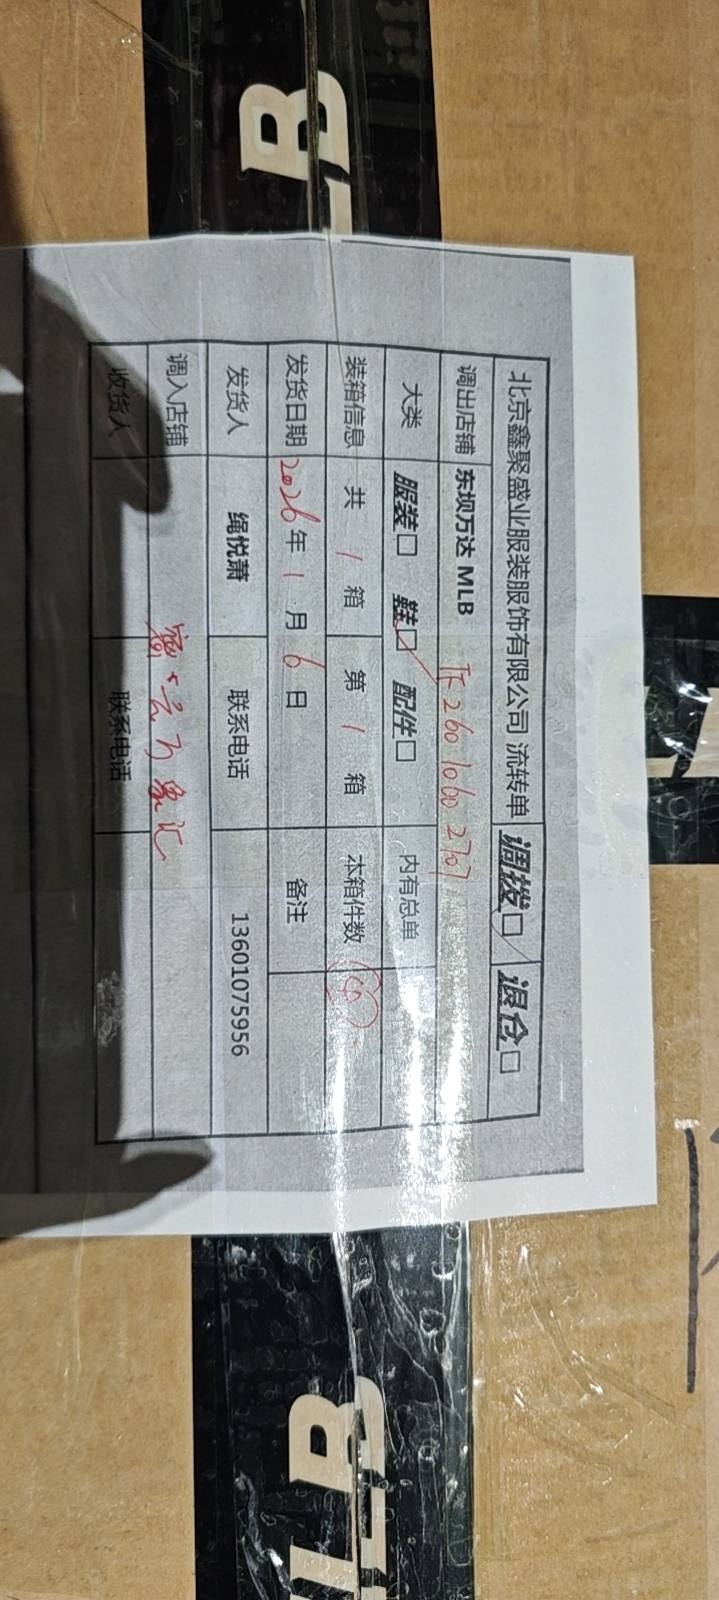 北京鑫聚盛业服装服饰有限公司 流转单 调拨□ 退仓□
调出店铺 东坝万达 MLB TF26010602707
大类 服装□ 鞋□ 配件□ 内有总单
装箱信息 共 1 箱 第 1 箱 本箱件数
发货日期 2026年1月6日 备注
发货人 绳悦萧 联系电话 13601075956
调入店铺 万象汇
收货人 联系电话
LB
MLB